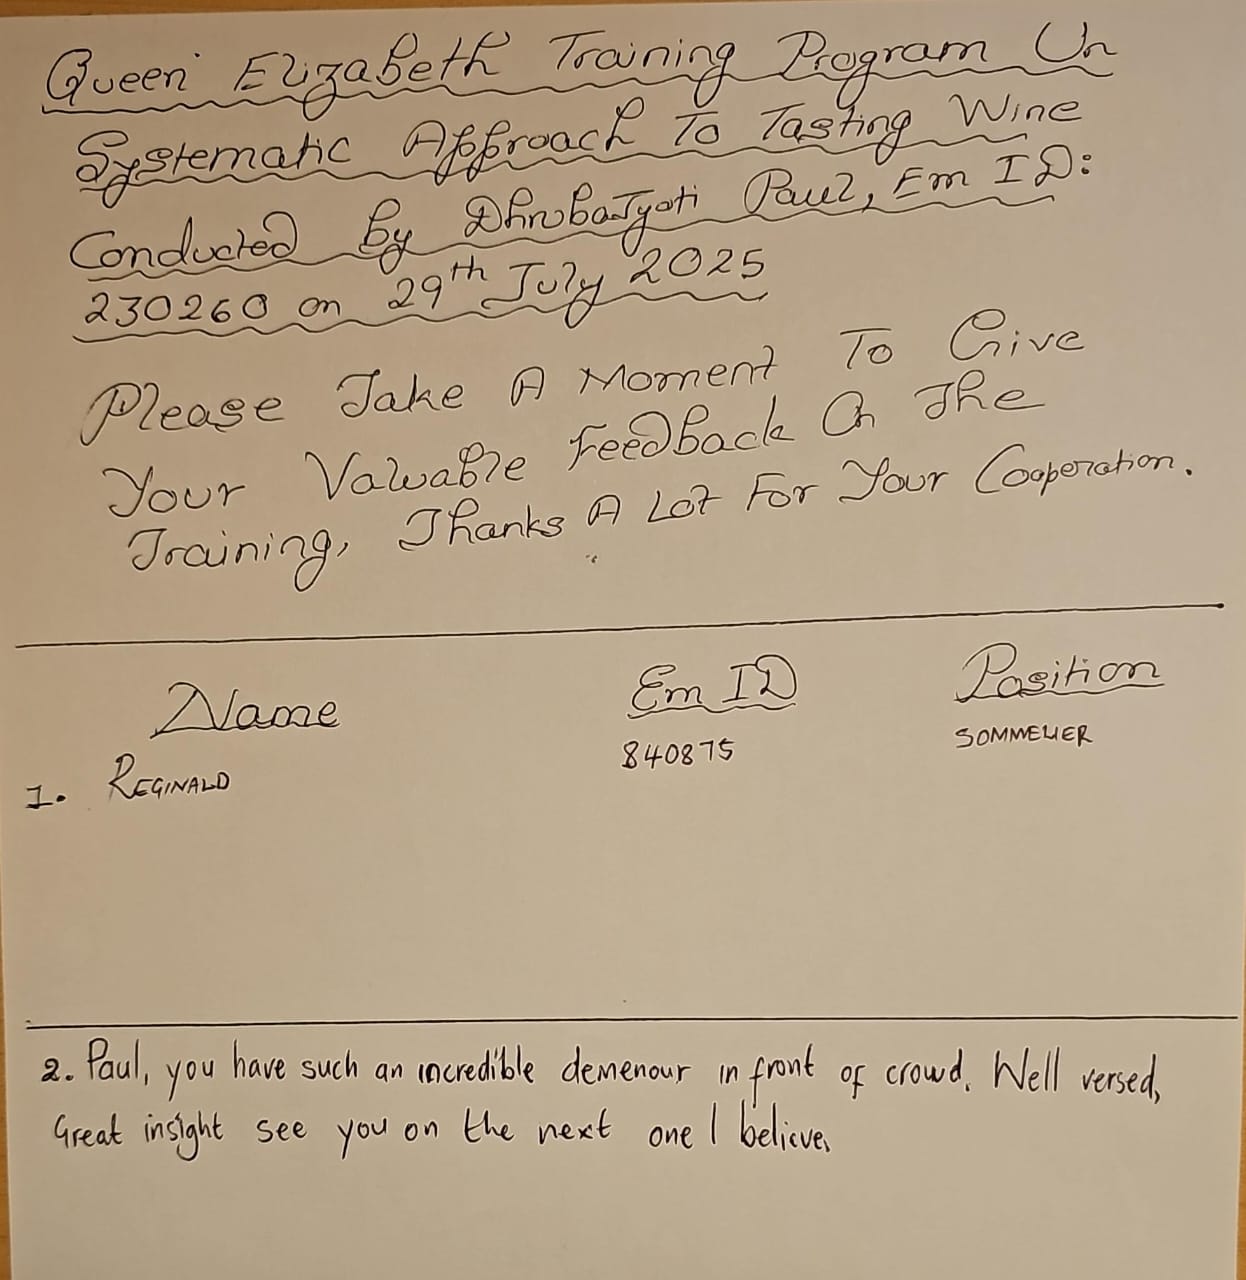 Queen Elizabeth Training Program On
Systematic Approach To Tasting Wine
Conducted By Dhrubajyoti Paul, Em ID:
230260 on 29th July 2025
Please Take A Moment To Give
Your Valuable Feedback On The
Training, Thanks A Lot For Your Cooperation.
Name Em ID Position
1. REGINALD 840875 SOMMELIER
2. Paul, you have such an incredible demenour in front of crowd. Well versed,
Great insight see you on the next one I believe.